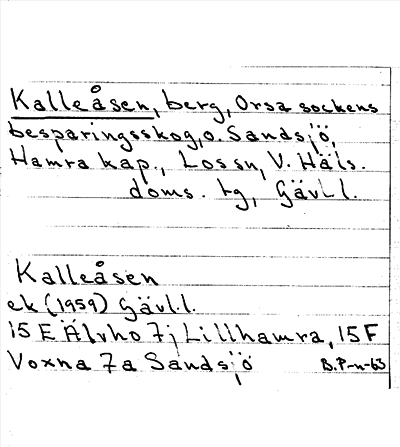 Kalleåsen, berg, Orsa sockens
besparingsskog, o. Sandsjö,
Hamra kap., Los sn, V. Häls.
doms. tg, Gävl.l.
Kalleåsen
ek (1959) Gävl.l.
15 E Älvho 7j Lillhamra, 15 F
Voxna 7a Sandsjö B.P-n-63